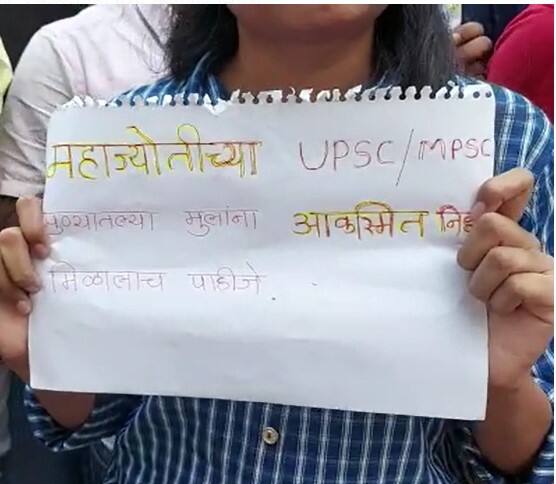 महाज्योतीच्या UPSC/MPSC
पुण्यातल्या मुलांना आकस्मित
मिळालाच पाहीजे.